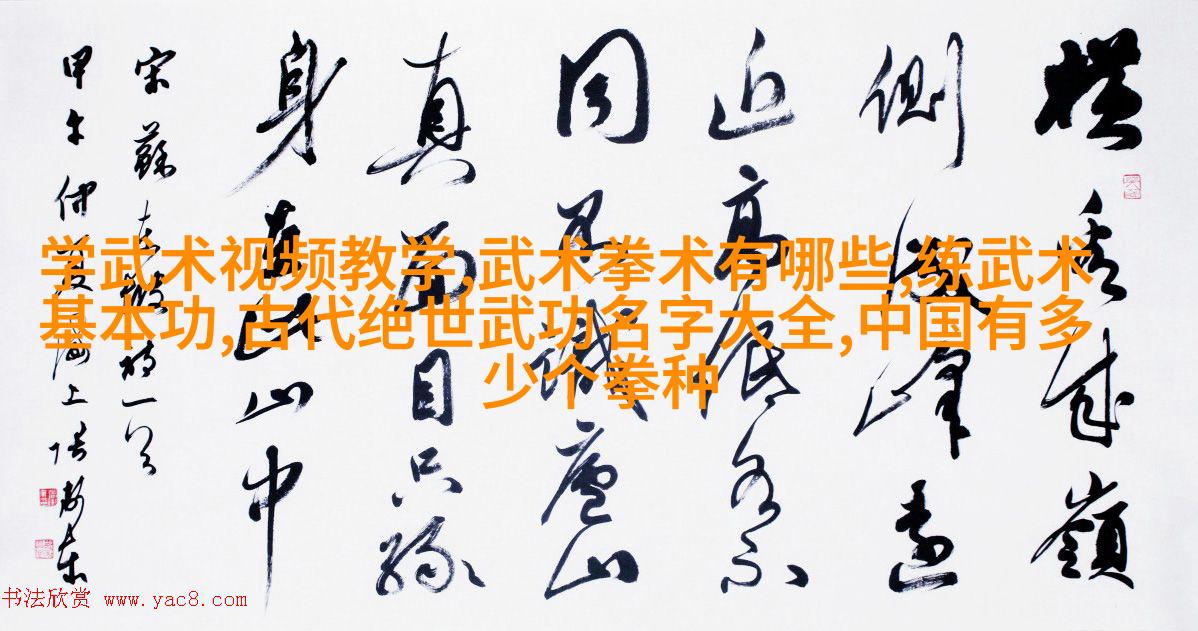 橫看成嶺
側成峰遠
近高低各不
同不識廬山
真面目只緣
身在此山中
宋蘇東坡詩一首
甲午仲夏海上
学武术视频教学,武术拳术有哪些,练武术
基本功,古代绝世武功名字大全,中国有多
少个拳种
书法欣赏 www.yac8.com